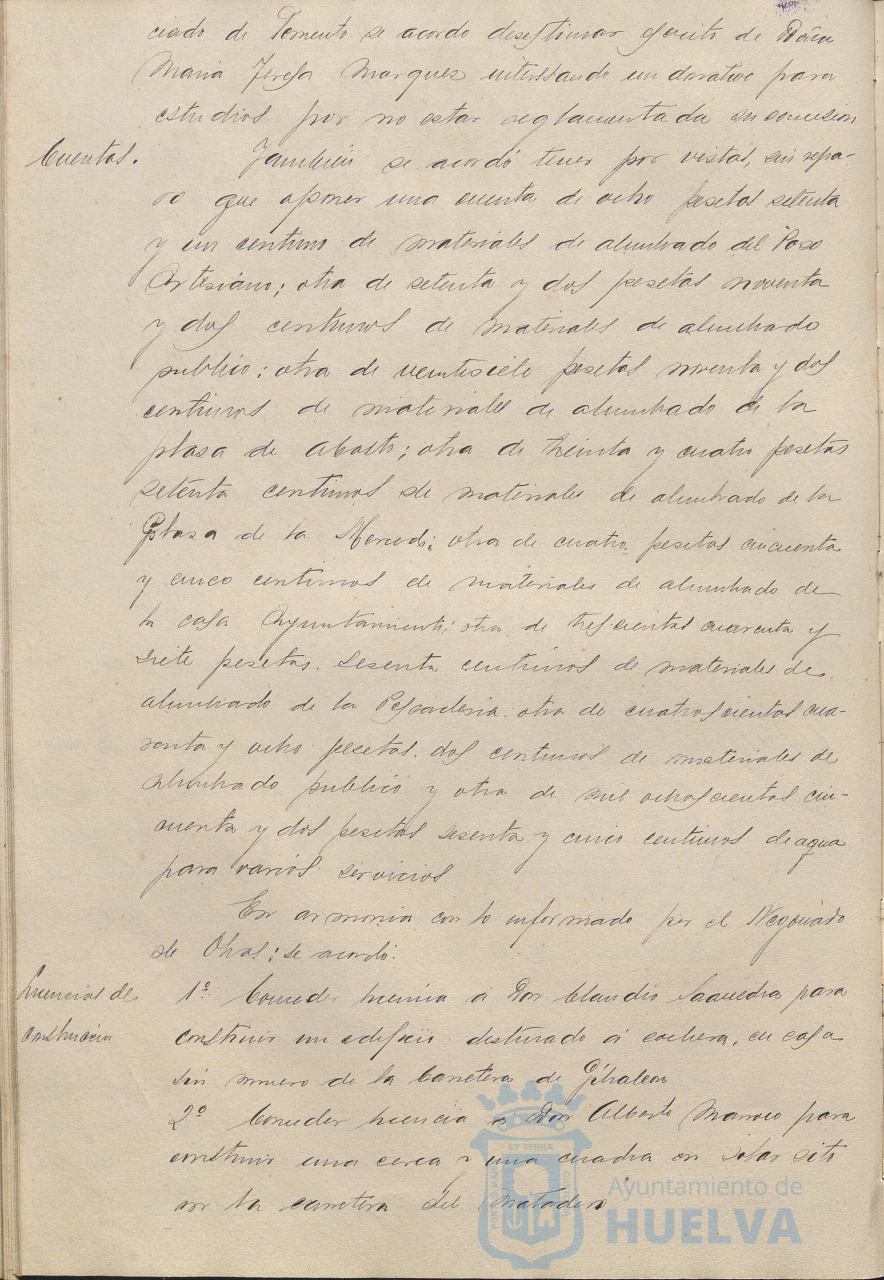 ciado de Fomento se acordo desestimar escrito de Doña
Maria Teresa Marquez interesando un donativo para
estudios por no estar reglamentada su concesion
Cuentas.
Tambien se acordó tener por vistas, sin repa-
ro que oponer una cuenta de ocho pesetas setenta
y un centimo de materiales de alumbrado del Poso
Artesiano; otra de setenta y dos pesetas noventa
y dos centimos de materiales de alumbrado
publico; otra de veintisiete pesetas noventa y dos
centimos de materiales de alumbrado de la
plasa de Abasto; otra de treinta y cuatro pesetas
setenta centimos de materiales de alumbrado de la
Plasa de la Merced; otra de cuatro pesetas cincuenta
y cinco centimos de materiales de alumbrado de
la casa Ayuntamiento; otra de trescientas cuarenta y
siete pesetas sesenta centimos de materiales de
alumbrado de la Pescaderia. otra de cuatroscientas cua-
renta y ocho pesetas. dos centimos de materiales de
alumbrado publico y otra de mil ochoscientas cin-
cuenta y dos pesetas sesenta y cinco centimos de agua
para varios servicios
En armonia con lo informado por el Negociado
de Obras; se acordó.
Licencias de
construcción
1º Conceder licencia a Don Claudio Saavedra para
construir un edificio destinado á cochera, en casa
sin numero de la Carretera de Gibraleon
2º Conceder licencia a Don Alberto para
construir una cerca y una cuadra en solar sito
en la carretera del Matadero
ET TERRA
Ayuntamiento de
HUELVA